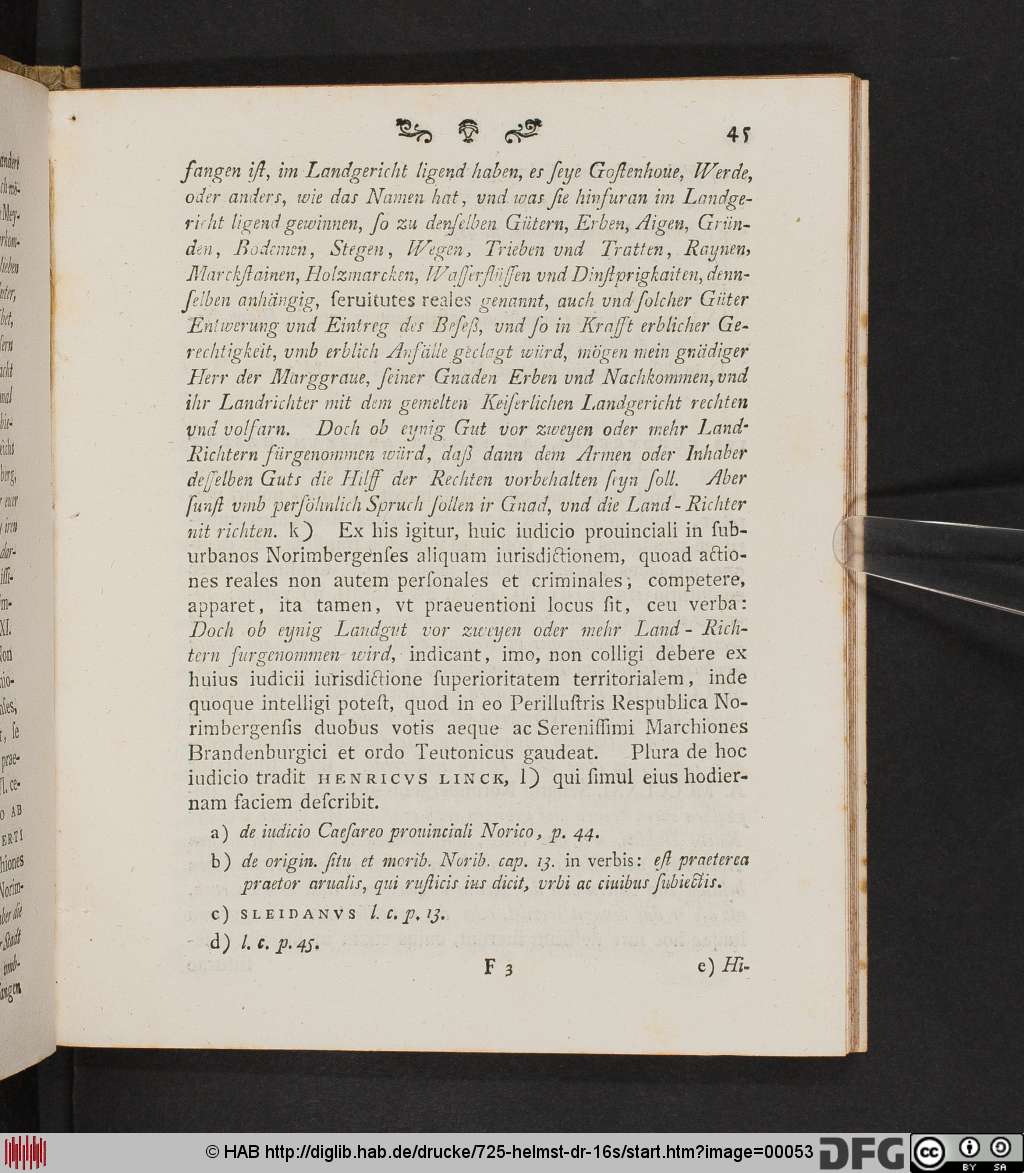 45
fangen iſt, im Landgericht ligend haben, es ſeye Goſtenhoue, Werde,
oder anders, wie das Namen hat, vnd was ſie hinfuran im Landge-
richt ligend gewinnen, ſo zu denſelben Gütern, Erben, Aigen, Grün-
den, Bodemen, Stegen, Wegen, Trieben vnd Tratten, Raynen,
Marckſtainen, Holzmarcken, Waſſerflüſſen vnd Dinſtprigkaiten, denn-
ſelben anhängig, ſeruitutes reales genannt, auch vnd ſolcher Güter
Entwerung vnd Eintreg des Beſeß, vnd ſo in Krafft erblicher Ge-
rechtigkeit, vmb erblich Anfälle geclagt würd, mögen mein gnädiger
Herr der Marggraue, ſeiner Gnaden Erben vnd Nachkommen, vnd
ihr Landrichter mit dem gemelten Keiſerlichen Landgericht rechten
vnd volfarn. Doch ob eynig Gut vor zweyen oder mehr Land-
Richtern fürgenommen würd, daß dann dem Armen oder Inhaber
deſſelben Guts die Hilff der Rechten vorbehalten ſeyn ſoll. Aber
ſunſt vmb perſöhnlich Spruch ſollen ir Gnad, vnd die Land-Richter
nit richten. k) Ex his igitur, huic iudicio prouinciali in ſub-
urbanos Norimbergenſes aliquam iurisdictionem, quoad actio-
nes reales non autem perſonales et criminales, competere,
apparet, ita tamen, vt praeuentioni locus ſit, ceu verba:
Doch ob eynig Landgut vor zweyen oder mehr Land-Rich-
tern furgenommen wird, indicant, imo, non colligi debere ex
huius iudicii iurisdictione ſuperioritatem territorialem, inde
quoque intelligi poteſt, quod in eo Perilluſtris Respublica No-
rimbergenſis duobus votis aeque ac Sereniſſimi Marchiones
Brandenburgici et ordo Teutonicus gaudeat. Plura de hoc
iudicio tradit HENRICVS LINCK, l) qui ſimul eius hodier-
nam faciem deſcribit.
a) de iudicio Caeſareo prouinciali Norico, p. 44.
b) de origin. ſitu et morib. Norib. cap. 13. in verbis: eſt praeterea
praetor arualis, qui ruſticis ius dicit, vrbi ac ciuibus ſubiectis.
c) SLEIDANVS l. c. p. 13.
d) l. c. p. 45.
F 3 e) Hi-
© HAB http://diglib.hab.de/drucke/725-helmst-dr-16s/start.htm?image=00053
DFG cc BY SA